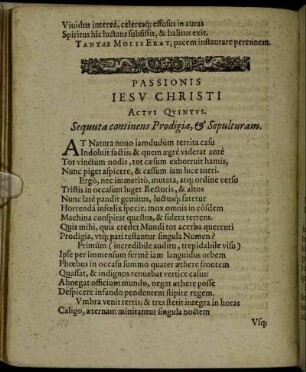 Viuidus interea, celeresq; effusus in auras
Spiritus hic luctans subsistit, & halitus exit.
TANTAE MOLIS ERAT, pacem instaurare perennem.
PASSIONIS
IESV CHRISTI
ACTVS QVINTVS.
Sequuta continens Prodigia, & Sepulturam.
AT Natura nouo iamdudum territa casu
Indoluit factis; & quem ægrè viderat antè
Tot vinctum nodis, tot cæsum exhorruit hamis,
Nunc piget aspicere, & cassum iam luce tueri.
Ergò, nec immeritò, mutata, atq; ordine verso
Tristis in occasum luget Rectoris, & altos
Nunc latè pandit gemitus, luctusq; fatetur
Horrendâ infelix specie; mox omnis in eósdem
Machina conspirat questus, & sidera terrent.
Quis mihi, quis credet Mundi tot acerba querenti
Prodigia, vtq; pati testantur singula Numen?
Primùm (incredibile auditu, trepidabile visu)
Ipse per immensum fermè iam languidus orbem
Phœbus in occasu summo quater æthere frontem
Quassat, & indignos renuebat vertice casus:
Abnegat officium mundo, negat æthere posse
Despicere infando pendentem stipite regem.
Vmbra venit terris, & tres stetit integra in horas
Caligo, æternam minitantur singula noctem
Vsq;